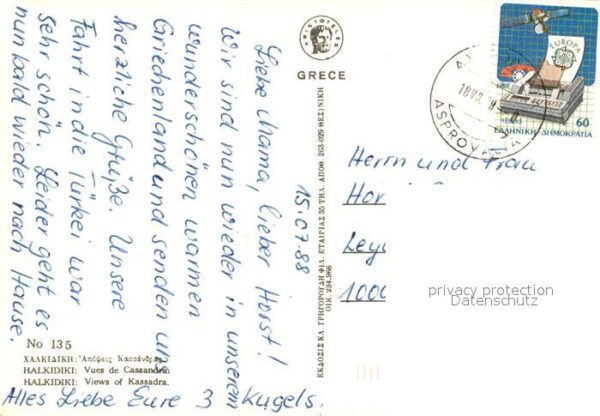 15.07.88
Liebe Mama, lieber Horst!
Wir sind nun wieder in unserem
wunderschönen warmen
Griechenland und senden un
herzliche Grüße. Unsere
Fahrt in die Türkei war
sehr schön. Leider geht es
nun bald wieder nach Hause.
Alles Liebe Eure 3 Kugels.
No 135
ΧΑΛΚΙΔΙΚΗ: Ἀπόψεις Κασσάνδρας
HALKIDIKI: Vues de Cassandra.
HALKIDIKI: Views of Kassadra.
ARISTOTELES
GRECE
ΕΚΔΟΣΙΣ ΚΑ. ΓΡΗΓΟΡΟΥΔΗ ΦΙΛ. ΕΤΑΙΡΙΑΣ 35 ΤΗΛ.
263.029 ΘΕΣ/ΝΙΚΗ
EUROPA
CEPT
1988
60
ΕΛΛΗΝΙΚΗ ΔΗΜΟΚΡΑΤΙΑ
18 VII
ASPROV
Herrn und Frau
Hor
Ley
1000
privacy protection
Datenschutz